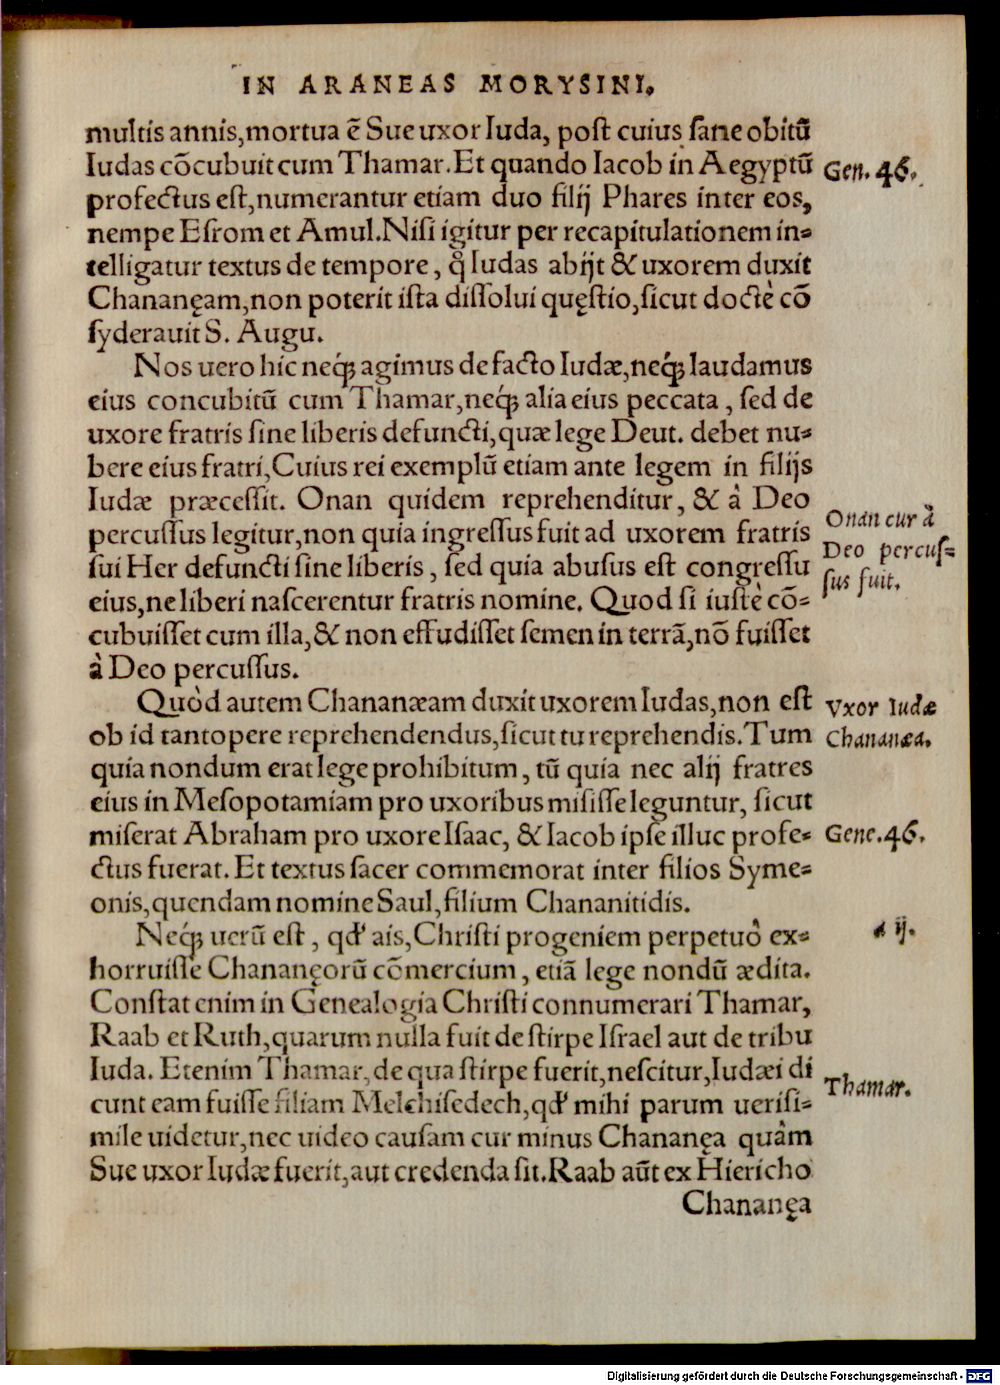 IN ARANEAS MORYSINI.
multis annis, mortua ē Sue uxor Iuda, post cuius sane obitū
Iudas cōcubuit cum Thamar. Et quando Iacob in Aegyptū
Gen. 46.
profectus est, numerantur etiam duo filij Phares inter eos,
nempe Esrom et Amul. Nisi igitur per recapitulationem in=
telligatur textus de tempore, qƷ̄ Iudas abijt & uxorem duxit
Chananęam, non poterit ista dissolui quęstio, sicut doctè cō
syderauit S. Augu.
Nos uero hic neqꝫ agimus de facto Iudæ, neqꝫ laudamus
eius concubitū cum Thamar, neqꝫ alia eius peccata, sed de
uxore fratris sine liberis defuncti, quæ lege Deut. debet nu=
bere eius fratri, Cuius rei exemplū etiam ante legem in filijs
Iudæ præcessit. Onan quidem reprehenditur, & à Deo
percussus legitur, non quia ingressus fuit ad uxorem fratris
Onan cur à
Deo percus=
sus fuit.
sui Her defuncti sine liberis, sed quia abusus est congressu
eius, ne liberi nascerentur fratris nomine. Quod si iustè cō=
cubuisset cum illa, & non effudisset semen in terrā, nō fuisset
à Deo percussus.
Quòd autem Chananæam duxit uxorem Iudas, non est
Vxor Iudæ
Chananæa.
ob id tantopere reprehendendus, sicut tu reprehendis. Tum
quia nondum erat lege prohibitum, tū quia nec alij fratres
eius in Mesopotamiam pro uxoribus misisse leguntur, sicut
miserat Abraham pro uxore Isaac, & Iacob ipse illuc profe=
Gene. 46.
ctus fuerat. Et textus sacer commemorat inter filios Syme=
onis, quendam nomine Saul, filium Chananitidis.
Neqꝫ uerū est, qđ ais, Christi progeniem perpetuò ex=
ij.
horruisse Chananęorū cōmercium, etiā lege nondū ædita.
Constat enim in Genealogia Christi connumerari Thamar,
Raab et Ruth, quarum nulla fuit de stirpe Israel aut de tribu
Iuda. Etenim Thamar, de qua stirpe fuerit, nescitur, Iudæi di
Thamar.
cunt eam fuisse filiam Melchisedech, qđ mihi parum uerisi=
mile uidetur, nec uideo causam cur minus Chananęa quàm
Sue uxor Iudæ fuerit, aut credenda sit. Raab aūt ex Hiericho
Chananęa
Digitalisierung gefördert durch die Deutsche Forschungsgemeinschaft - DFG